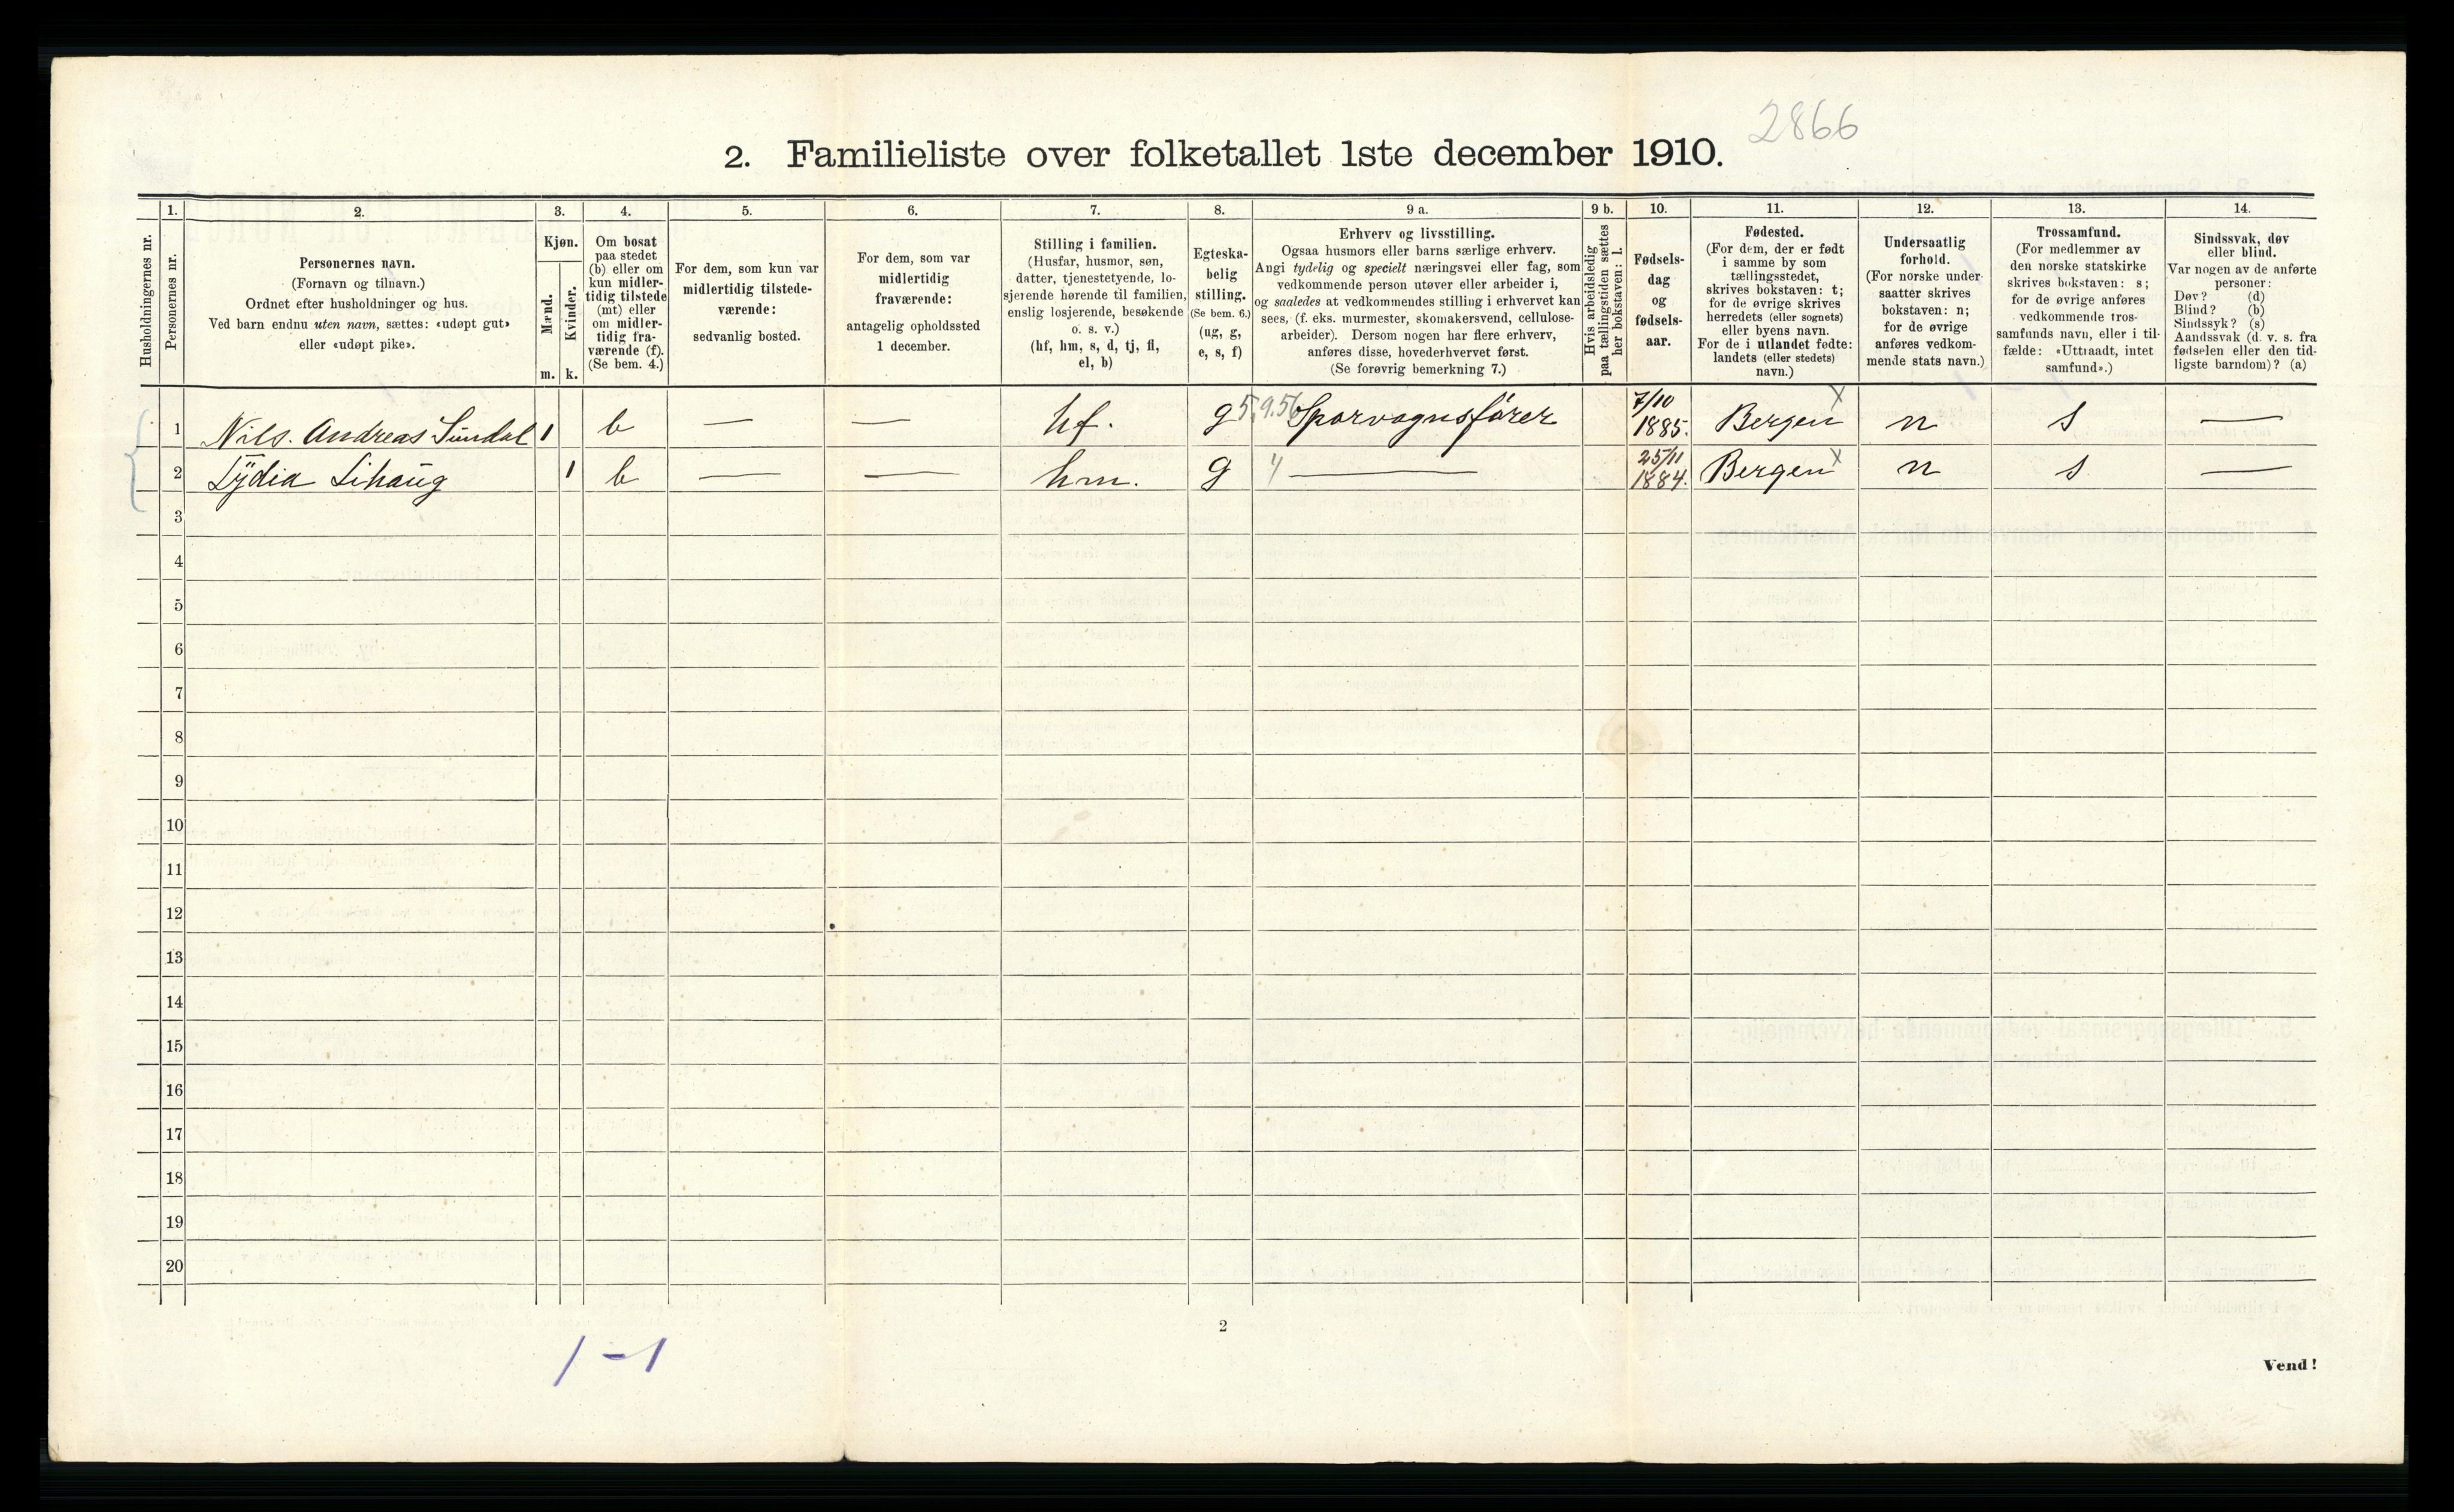 2866
2. Familieliste over folketallet 1ste december 1910.
1. 2. 3. 4. 5. 6. 7. 8. 9 a. 9 b. 10. 11. 12. 13. 14.
Husholdningernes nr.
Personernes nr.
Personernes navn.
(Fornavn og tilnavn.)
Ordnet efter husholdninger og hus.
Ved barn endnu uten navn, sættes: «udøpt gut»
eller «udøpt pike».
Kjøn.
Mænd.
Kvinder.
m. k.
Om bosat
paa stedet
(b) eller om
kun midler-
tidig tilstede
(mt) eller
om midler-
tidig fra-
værende (f).
(Se bem. 4.)
For dem, som kun var
midlertidig tilstede-
værende:
sedvanlig bosted.
For dem, som var
midlertidig
fraværende:
antagelig opholdssted
1 december.
Stilling i familien.
(Husfar, husmor, søn,
datter, tjenestetyende, lo-
sjerende hørende til familien,
enslig losjerende, besøkende
o. s. v.)
(hf, hm, s, d, tj, fl,
el, b)
Egteska-
belig
stilling.
(Se bem. 6.)
(ug, g,
e, s, f)
Erhverv og livsstilling.
Ogsaa husmors eller barns særlige erhverv.
Angi tydelig og specielt næringsvei eller fag, som
vedkommende person utøver eller arbeider i,
og saaledes at vedkommendes stilling i erhvervet kan
sees, (f. eks. murmester, skomakersvend, cellulose-
arbeider). Dersom nogen har flere erhverv,
anføres disse, hovederhvervet først.
(Se forøvrig bemerkning 7.)
Hvis arbeidsledig
paa tællingstiden sættes
her bokstaven: l.
Fødsels-
dag
og
fødsels-
aar.
Fødested.
(For dem, der er født
i samme by som
tællingsstedet,
skrives bokstaven: t;
for de øvrige skrives
herredets (eller sognets)
eller byens navn.
For de i utlandet fødte:
landets (eller stedets)
navn.)
Undersaatlig
forhold.
(For norske under-
saatter skrives
bokstaven: n;
for de øvrige
anføres vedkom-
mende stats navn.)
Trossamfund.
(For medlemmer av
den norske statskirke
skrives bokstaven: s;
for de øvrige anføres
vedkommende tros-
samfunds navn, eller i til-
fælde: «Uttraadt, intet
samfund».)
Sindssvak, døv
eller blind.
Var nogen av de anførte
personer:
Døv? (d)
Blind? (b)
Sindssyk? (s)
Aandssvak (d. v. s. fra
fødselen eller den tid-
ligste barndom)? (a)
1 Nils. Andreas Sundal 1 b — — hf. g 5.9.56 Sporvognsfører 7/10 1885. Bergen x n s —
2 Lydia Lihaug 1 b — — hm. g " — 25/11 1884. Bergen x n s —
3
4
5
6
7
8
9
10
11
12
13
14
15
16
17
18
19
20
2
1-1
Vend!